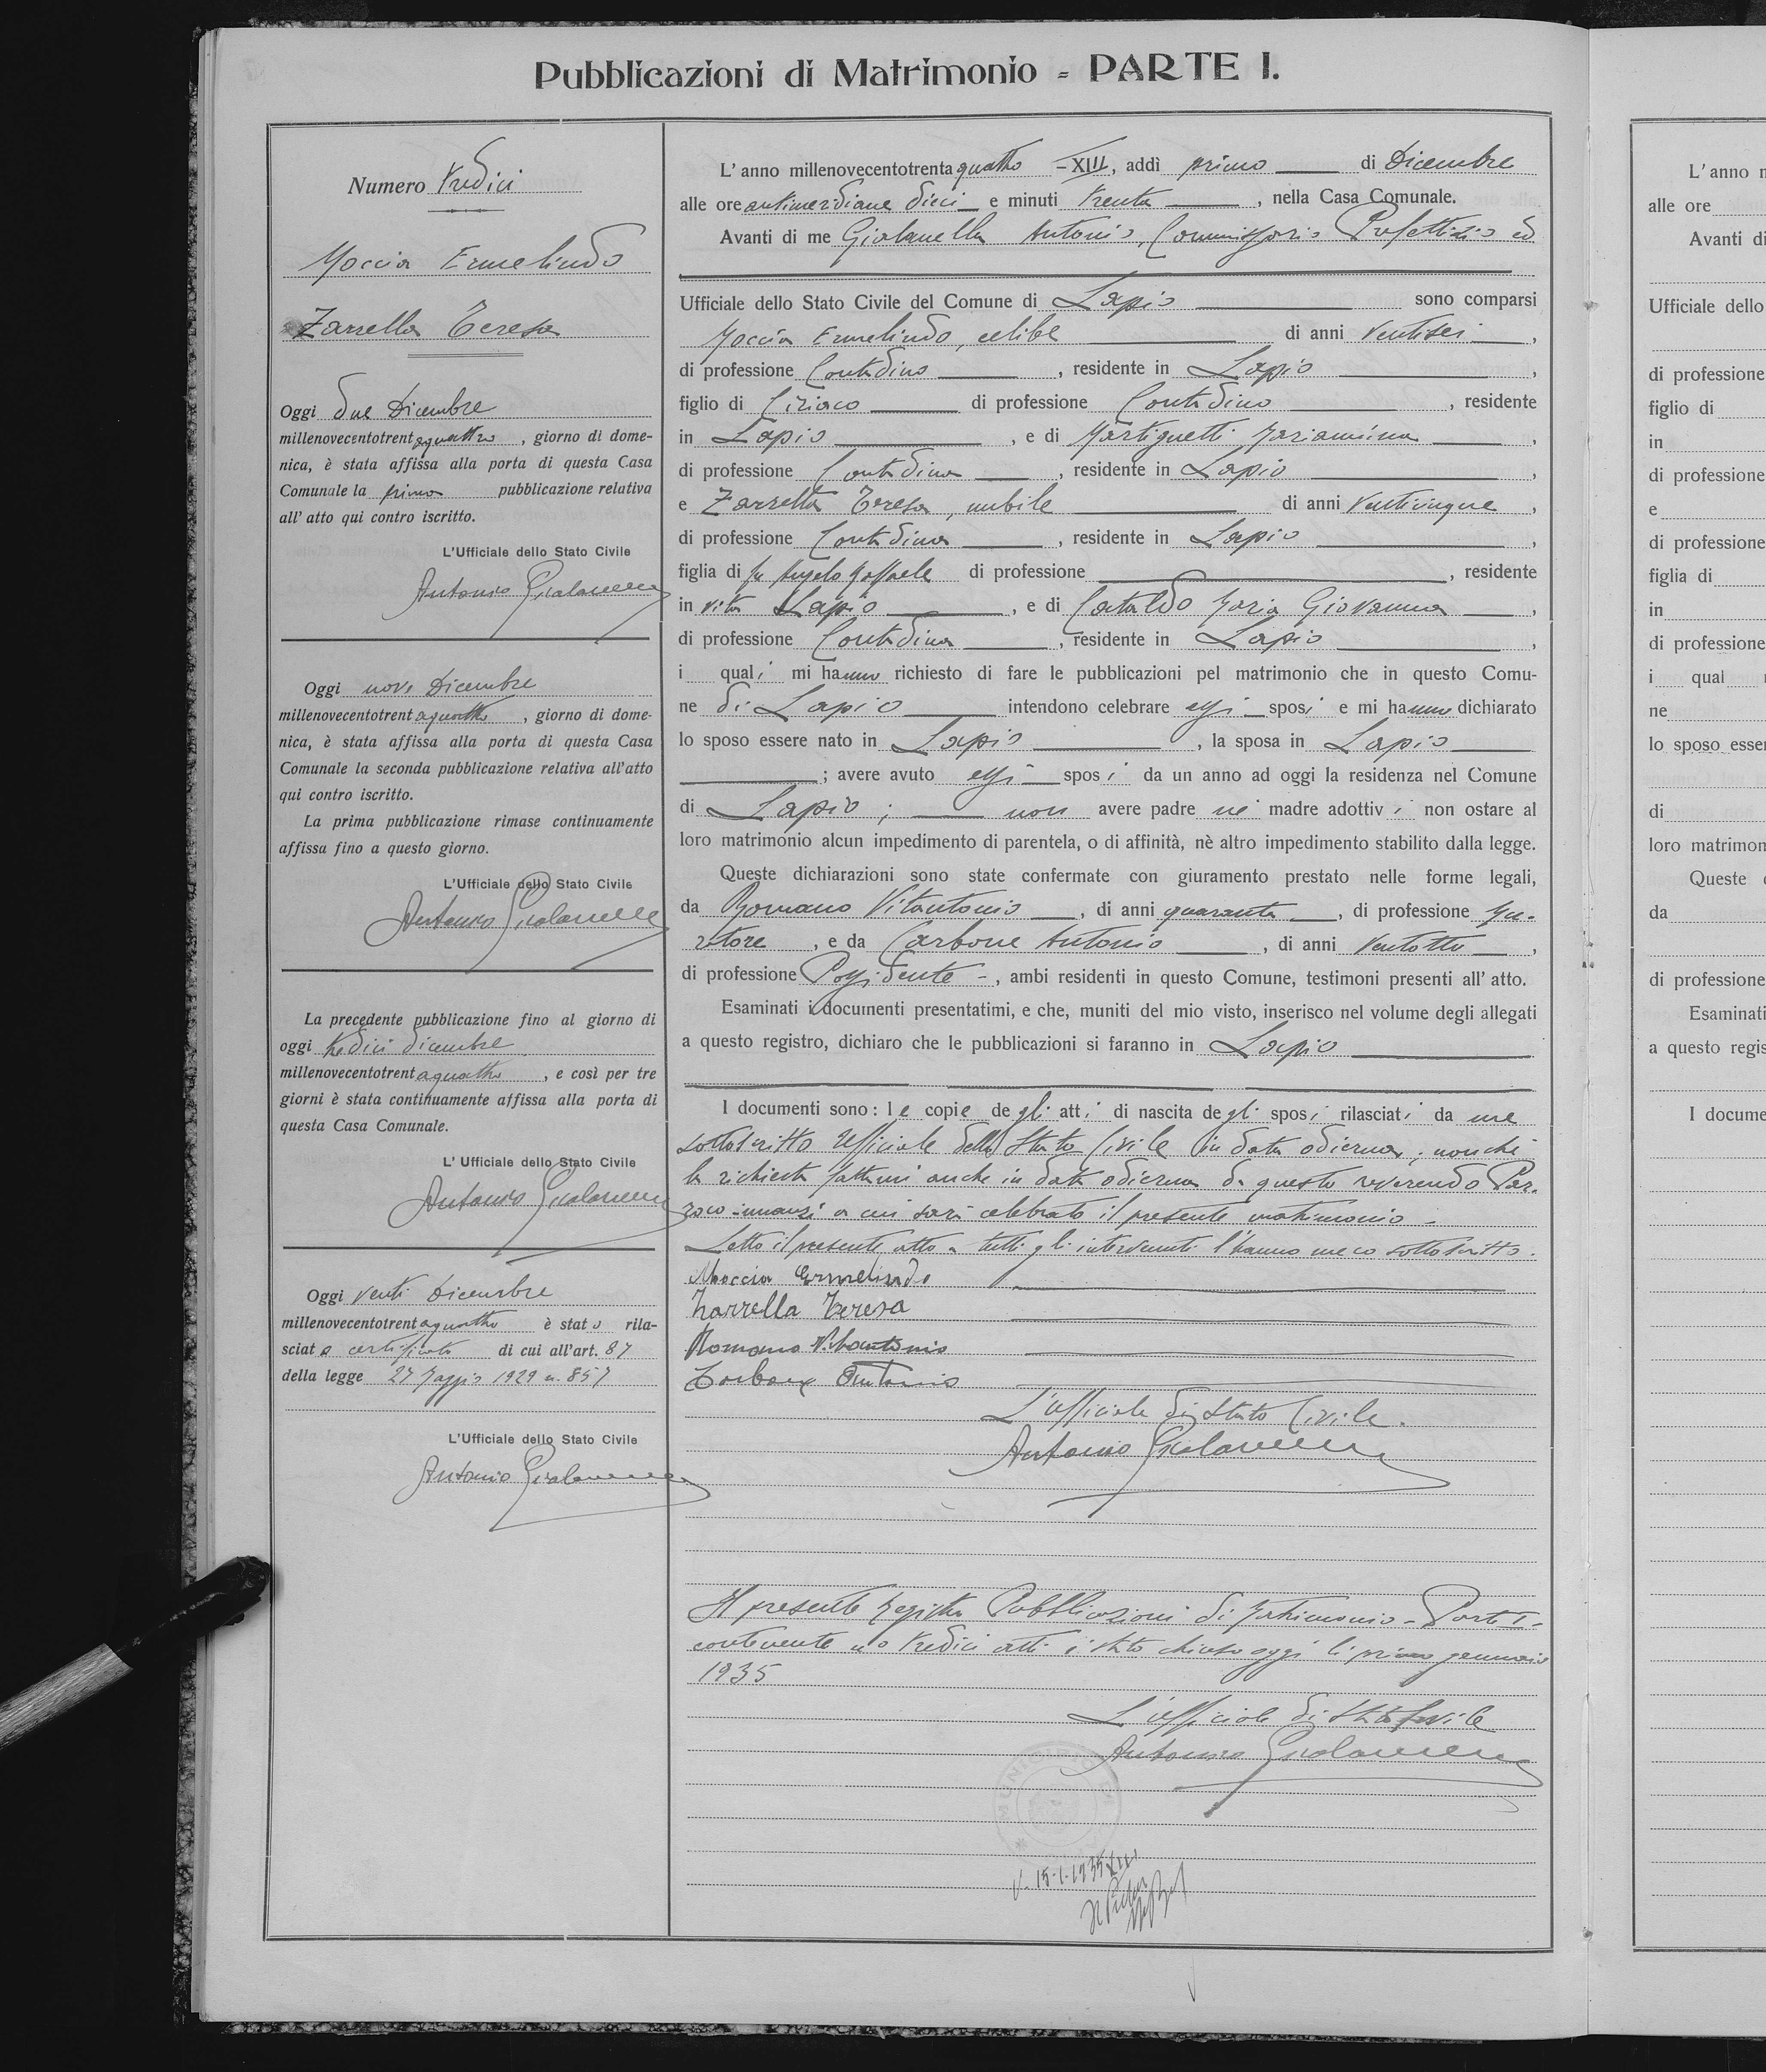 Pubblicazioni di Matrimonio = PARTE I.
Numero tredici
Moccia Ermelindo
Zarrella Teresa
Oggi due Dicembre
millenovecentotrentaquattro, giorno di dome-
nica, è stata affissa alla porta di questa Casa
Comunale la prima pubblicazione relativa
all' atto qui contro iscritto.
L'Ufficiale dello Stato Civile
Antonio Giolanella
Oggi nove Dicembre
millenovecentotrentaquattro, giorno di dome-
nica, è stata affissa alla porta di questa Casa
Comunale la seconda pubblicazione relativa all'atto
qui contro iscritto.
La prima pubblicazione rimase continuamente
affissa fino a questo giorno.
L'Ufficiale dello Stato Civile
Antonio Giolanella
La precedente pubblicazione fino al giorno di
oggi tredici dicembre
millenovecentotrentaquattro, e così per tre
giorni è stata continuamente affissa alla porta di
questa Casa Comunale.
L' Ufficiale dello Stato Civile
Antonio Giolanella
Oggi venti Dicembre
millenovecentotrentaquattro è stato rila-
sciato certificato di cui all'art. 87
della legge 27 Maggio 1929 n. 857
L'Ufficiale dello Stato Civile
Antonio Giolanella
L' anno millenovecentotrentaquattro - XIII, addì primo di Dicembre
alle ore antimeridiane dieci e minuti trenta, nella Casa Comunale.
Avanti di me Giolanella Antonio, Commissario Prefettizio ed
Ufficiale dello Stato Civile del Comune di Lapio sono comparsi
Moccia Ermelindo, celibe di anni ventisei,
di professione Contadino, residente in Lapio,
figlio di Ciriaco di professione Contadino, residente
in Lapio, e di Martignetti Mariannina,
di professione Contadina, residente in Lapio,
e Zarrella Teresa, nubile di anni venticinque,
di professione Contadina, residente in Lapio,
figlia di fu Angelo Raffaele di professione, residente
in vita Lapio, e di Cataldo Maria Giovanna,
di professione Contadina, residente in Lapio,
i quali mi hanno richiesto di fare le pubblicazioni pel matrimonio che in questo Comu-
ne di Lapio intendono celebrare essi sposi e mi hanno dichiarato
lo sposo essere nato in Lapio, la sposa in Lapio
; avere avuto essi sposi da un anno ad oggi la residenza nel Comune
di Lapio; non avere padre nè madre adottivi non ostare al
loro matrimonio alcun impedimento di parentela, o di affinità, nè altro impedimento stabilito dalla legge.
Queste dichiarazioni sono state confermate con giuramento prestato nelle forme legali,
da Romano Vitantonio, di anni quaranta, di professione Mu-
ratore, e da Carbone Antonio, di anni ventotto,
di professione Possidente -, ambi residenti in questo Comune, testimoni presenti all' atto.
Esaminati i documenti presentatimi, e che, muniti del mio visto, inserisco nel volume degli allegati
a questo registro, dichiaro che le pubblicazioni si faranno in Lapio
I documenti sono: le copie degli atti di nascita degli sposi rilasciati da me
sottoscritto Ufficiale dello Stato Civile in data odierna; nonchè
la richiesta fattami anche in data odierna da questo reverendo Par-
roco innanzi a cui sarà celebrato il presente matrimonio -
Letto il presente atto a tutti gli intervenuti l'hanno meco sottoscritto.
Moccia Ermelindo
Zarrella Teresa
Romano Vitantonio
Carbone Antonio
L'ufficiale di Stato Civile.
Antonio Giolanella
Il presente registro Pubblicazioni di Matrimonio - Parte I -
contenente n° tredici atti è stato chiuso oggi li primo gennaio
1935
L'ufficiale di Stato Civile
Antonio Giolanella
V. 15-1-1935 XIII
L' anno
alle ore
Avanti di
Ufficiale dello
di professione
figlio di
in
di professione
e
di professione
figlia di
in
di professione
i qual
ne
lo sposo
di
loro
Queste
da
di professione
Esaminati
a questo
I